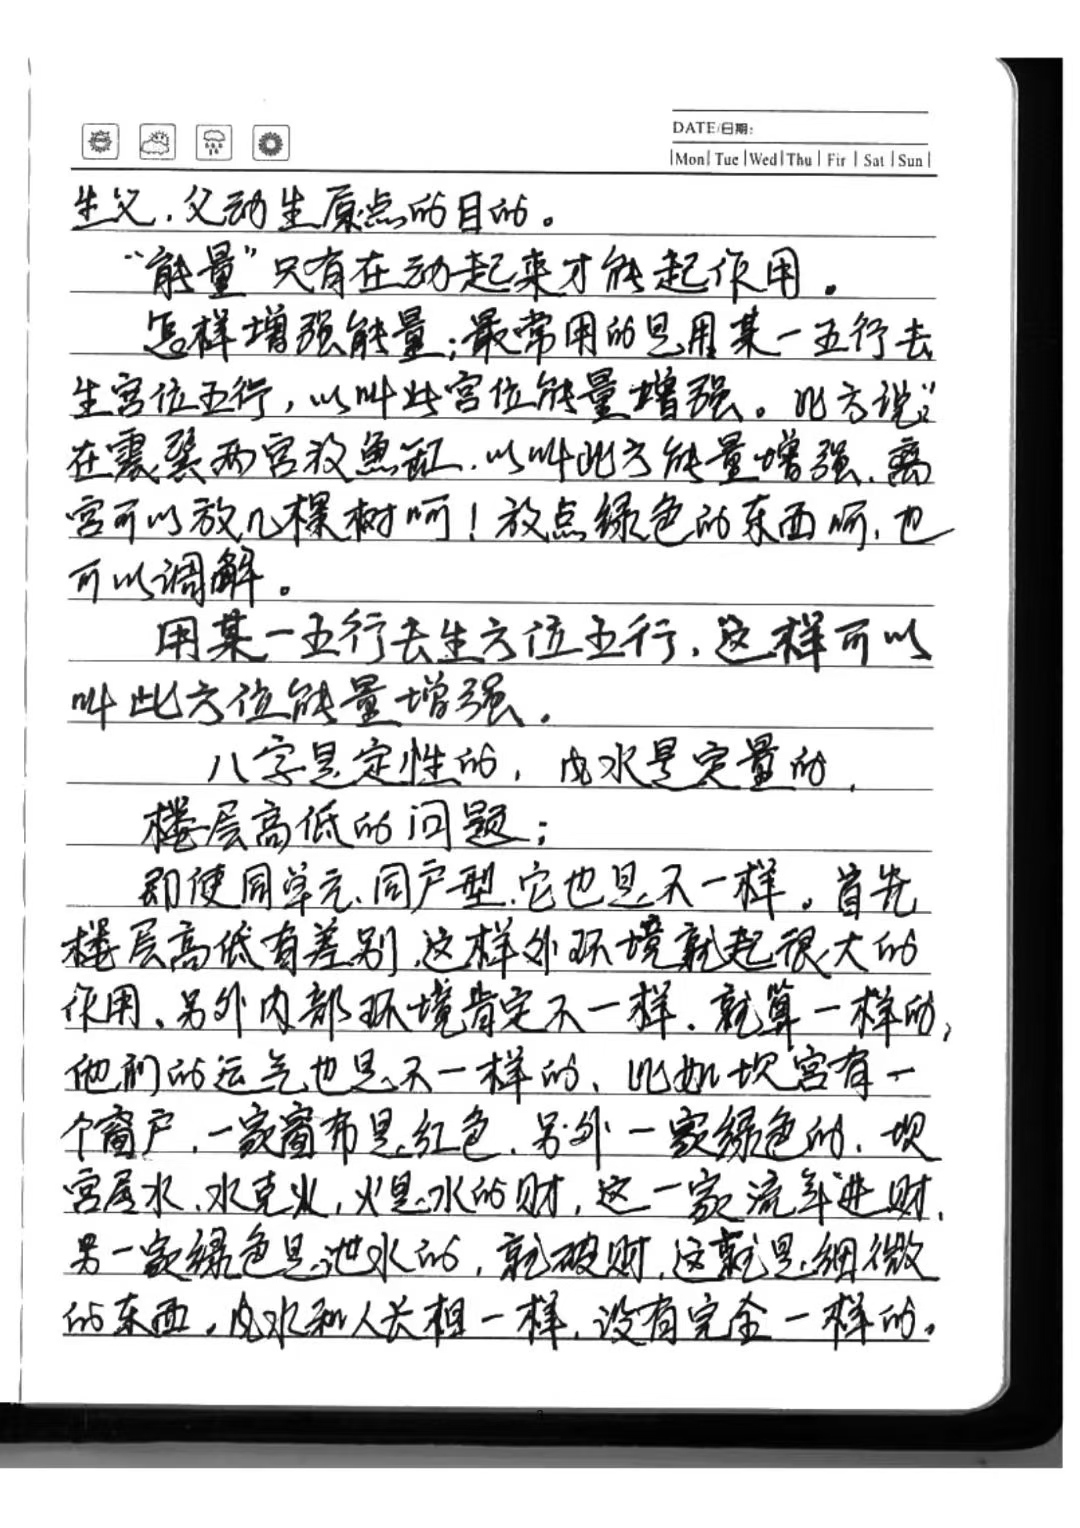 DATE/日期:
Mon Tue Wed Thu Fir Sat Sun
生父，父动生原点的目的。
“能量”只有在动起来才能起作用。
怎样增强能量；最常用的是用某一五行去
生宫位五行，以叫此宫位能量增强。比方说：
在震巽两宫放鱼缸，以叫此方能量增强，离
宫可以放几棵树呵！放点绿色的东西呵，也
可以调解。
用某一五行去生方位五行，这样可以
叫此方位能量增强。
八字是定性的，风水是定量的，
楼层高低的问题；
即使同单元、同户型，它也是不一样。首先
楼层高低有差别，这样外环境就起很大的
作用、另外内部环境肯定不一样，就算一样的，
他们的运气也是不一样的、比如坎宫有一
个窗户，一家窗布是红色，另外一家绿色的，坎
宫属水，水克火，火是水的财，这一家流年进财，
另一家绿色是泄水的，就破财，这就是细微
的东西，风水和人长相一样，没有完全一样的。